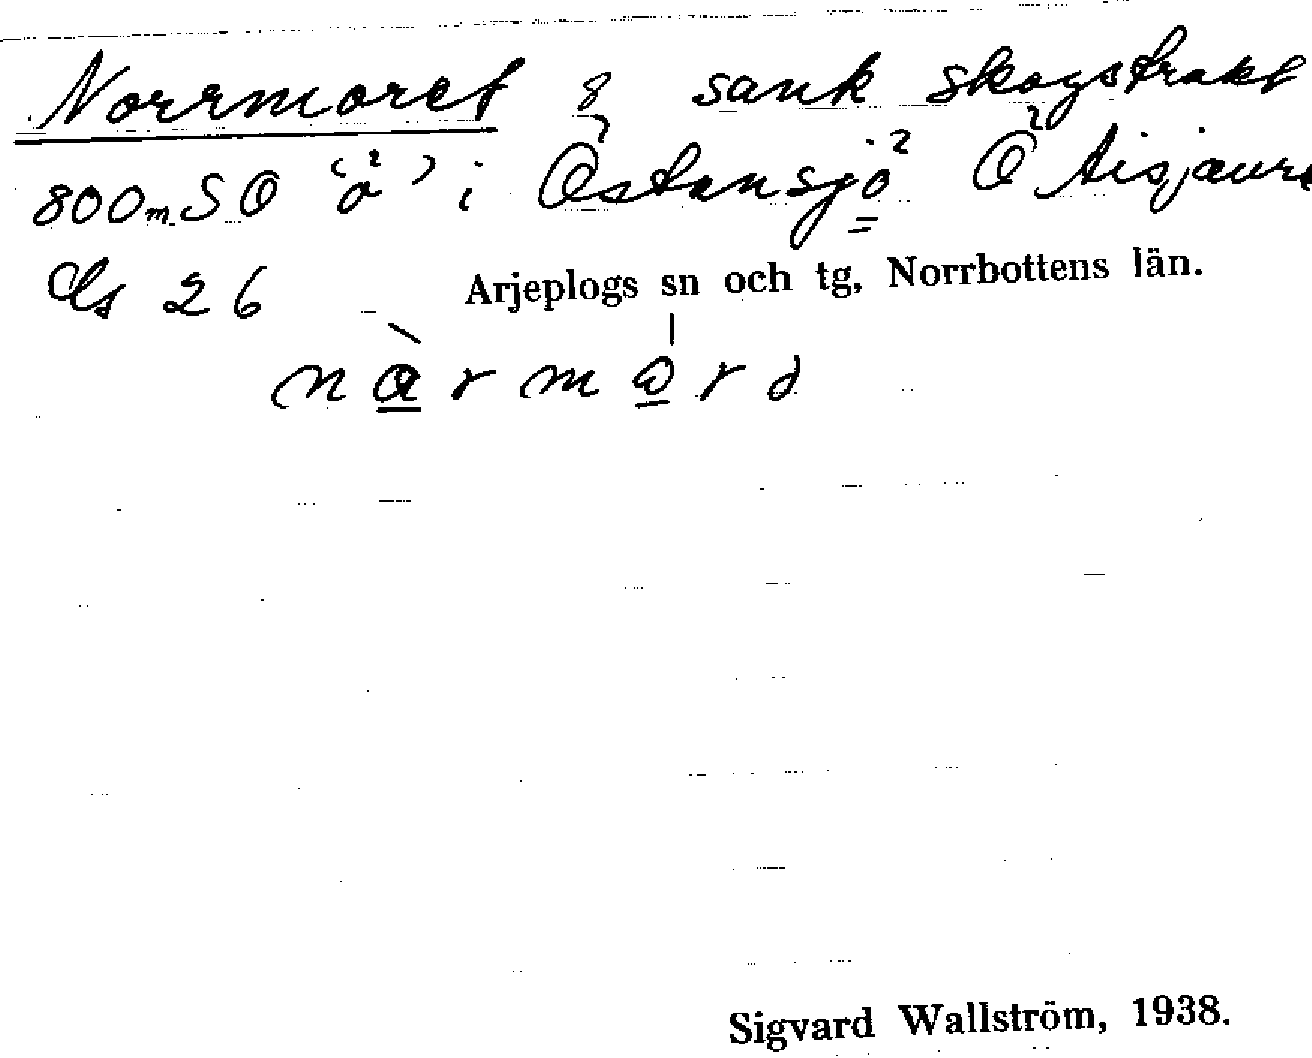 Norrmoret 8, sank skogstrakt
800 m SO "ö" i Östansjö Ö Aisjaure
Ls 26 Arjeplogs sn och tg, Norrbottens län.
Sigvard Wallström, 1938.